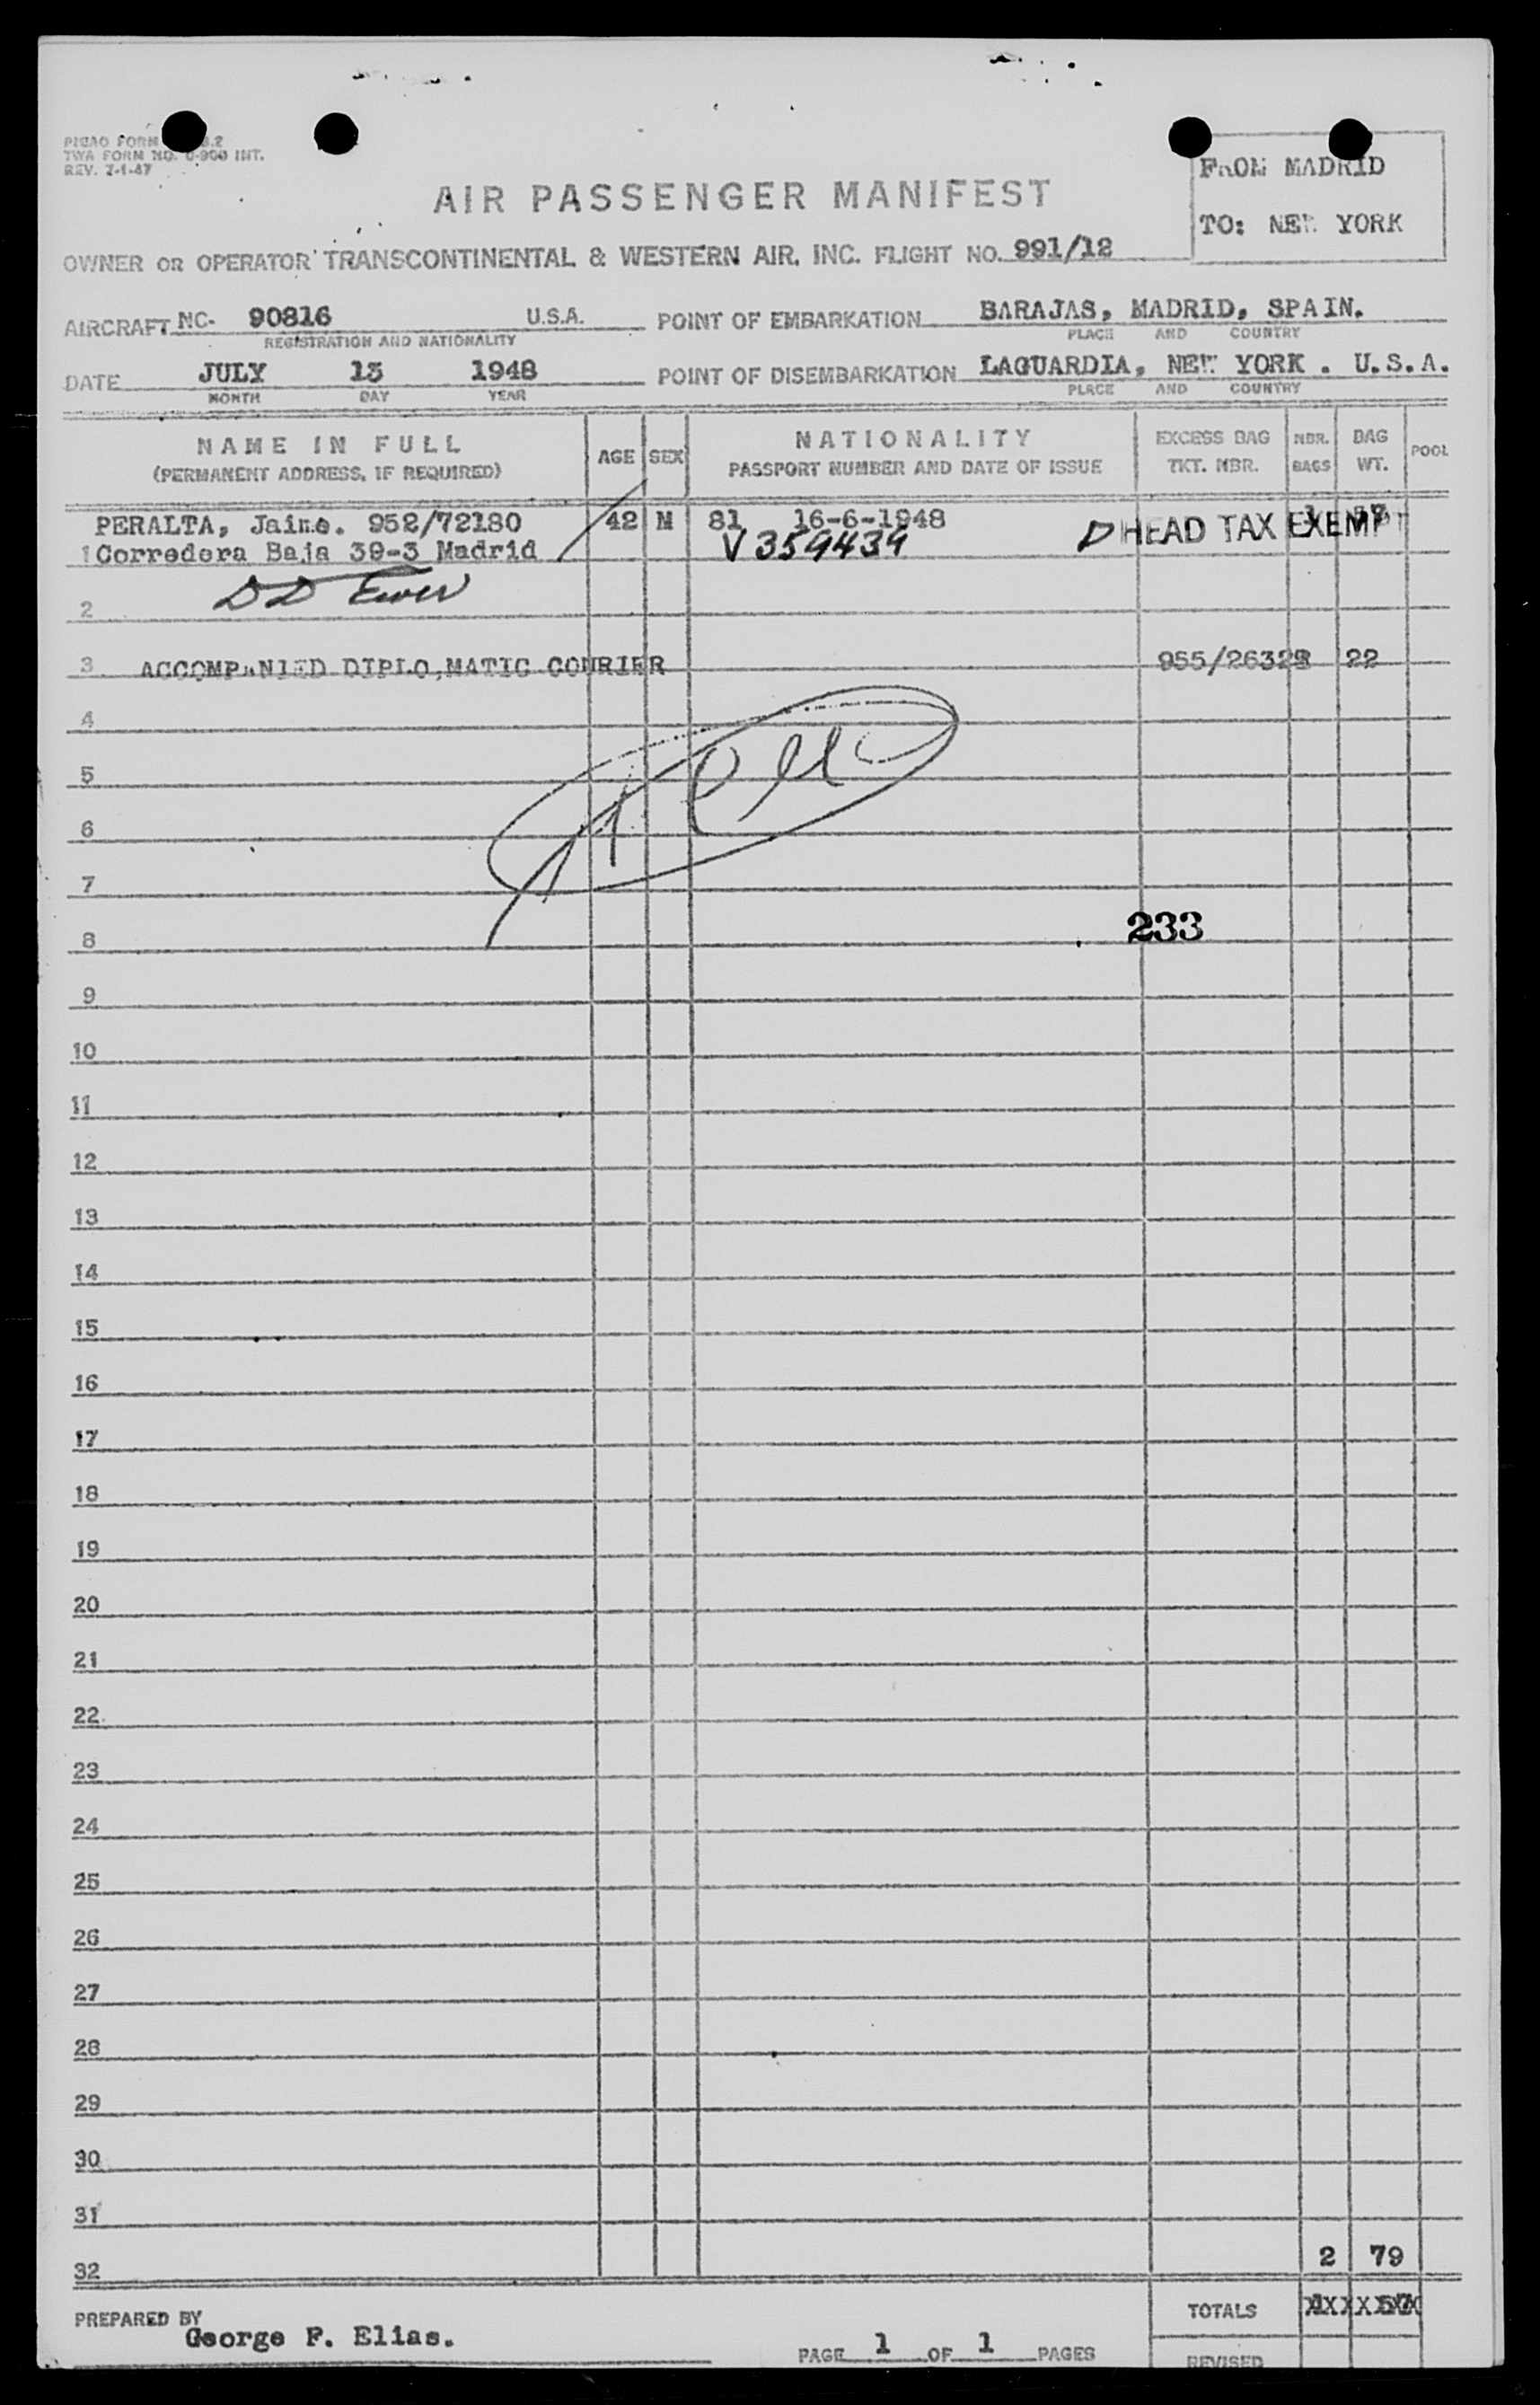 PICAO FORM
TWA FORM NO. 0-900 INT.
REV. 7-1-47
FROM MADRID
TO: NEW YORK
AIR PASSENGER MANIFEST
OWNER OR OPERATOR TRANSCONTINENTAL & WESTERN AIR, INC. FLIGHT NO. 991/12
AIRCRAFT NC- 90816 U.S.A. POINT OF EMBARKATION BARAJAS, MADRID, SPAIN.
REGISTRATION AND NATIONALITY PLACE AND COUNTRY
DATE JULY 13 1948 POINT OF DISEMBARKATION LAGUARDIA, NEW YORK . U.S.A.
MONTH DAY YEAR PLACE AND COUNTRY
NAME IN FULL AGE SEX NATIONALITY EXCESS BAG NBR. BAG POOL
(PERMANENT ADDRESS, IF REQUIRED) PASSPORT NUMBER AND DATE OF ISSUE TKT. NBR. BAGS WT.
PERALTA, Jaime. 952/72180 42 M 81 16-6-1948 HEAD TAX EXEMPT
1 Corredera Baja 39-3 Madrid V 359439
2
3 ACCOMPANIED DIPLO,MATIC COURIER 955/2632 22
4
5
6
7
233
8
9
10
11
12
13
14
15
16
17
18
19
20
21
22
23
24
25
26
27
28
29
30
31
32 2 79
PREPARED BY TOTALS
George F. Elias.
PAGE 1 OF 1 PAGES
REVISED